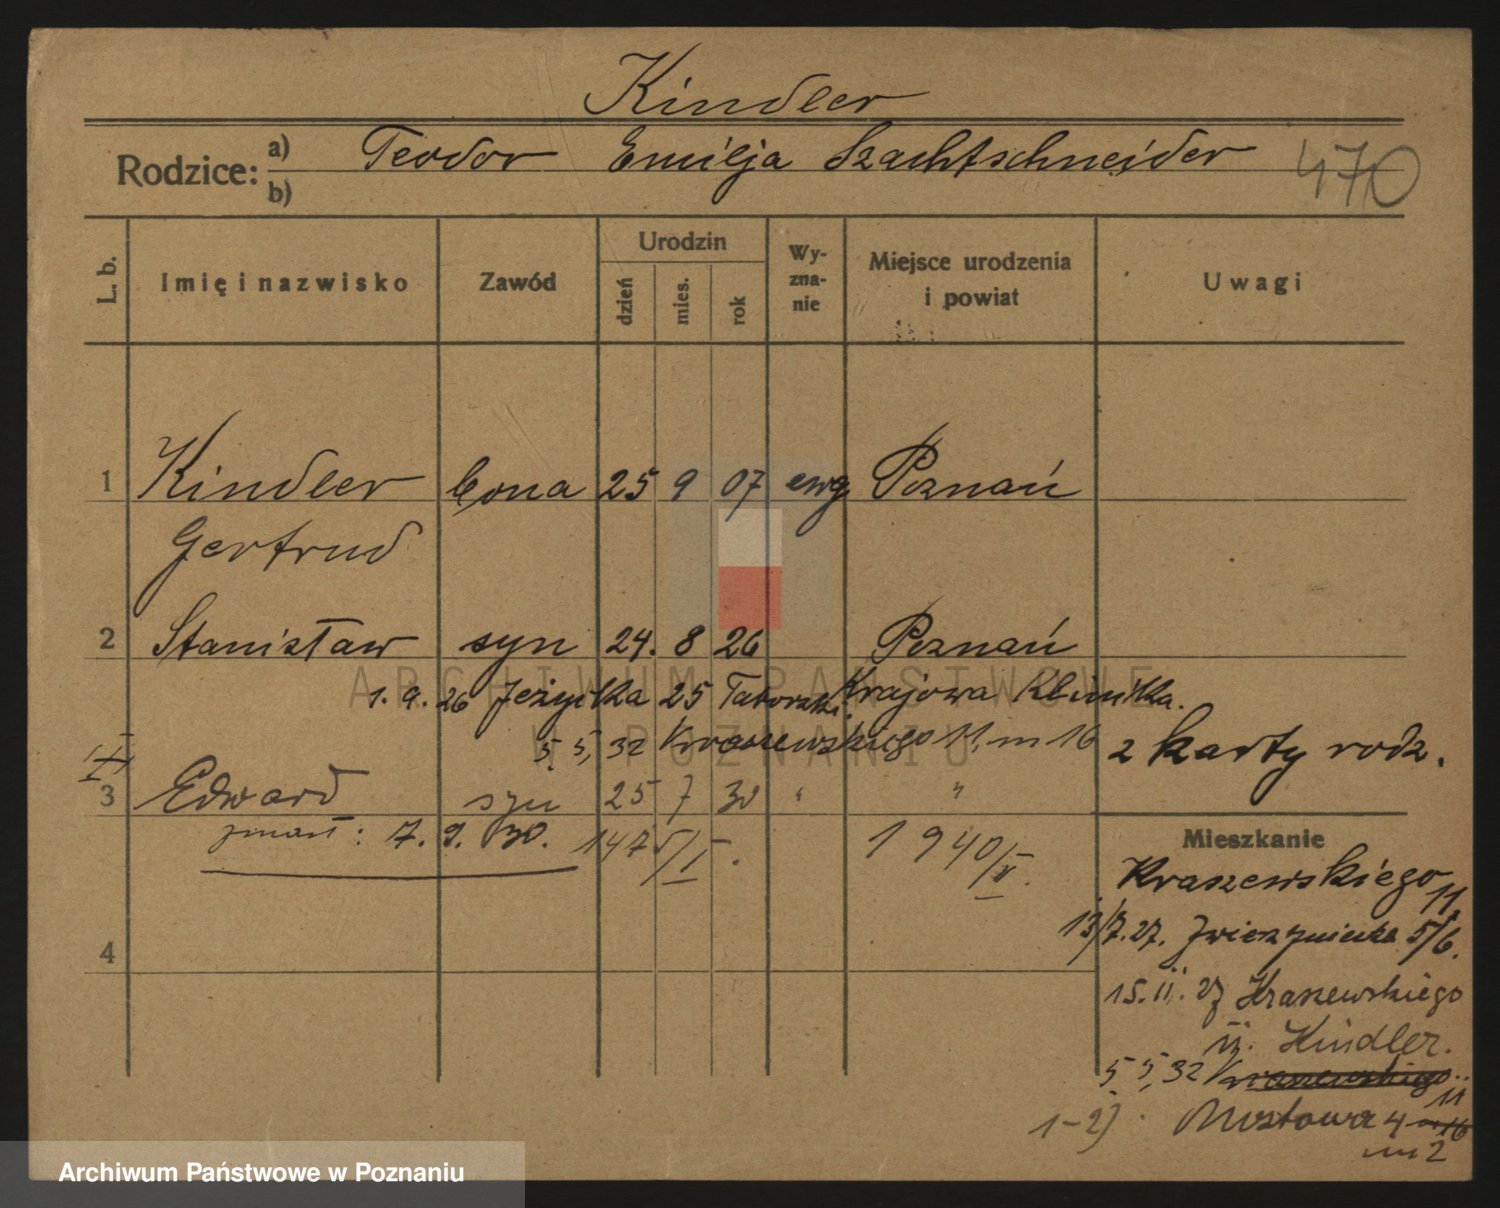 Kindler
Rodzice: a) Teodor Emilja Szachtschneider
b)
470
L. b. Imię i nazwisko Zawód Urodzin dzień mies. rok Wy-zna-nie Miejsce urodzenia i powiat Uwagi
1 Kindler bona 25 9 07 ewg Poznań
Gertrud
2 Stanisław syn 24. 8 26 Poznań
1. 9. 26 25 Krajowa Klinika.
5. 5, 32 Kraszewskiego 11, m 16 2 karty rodz.
3 Edward syn 25 7 30 " "
zmarł: 7. 9. 30. 1475/I. 1940/II.
Mieszkanie
Kraszewskiego 11.
13/7. 27. Zwierzyniecka 5/6.
15. II. 27 Kraszewskiego
11. Kindler.
5. 5, 32 Kraszewskiego 11
4 1-2) Mostowa 4 m 16
m 2
ARCHIWUM PAŃSTWOWE
W POZNANIU
Archiwum Państwowe w Poznaniu